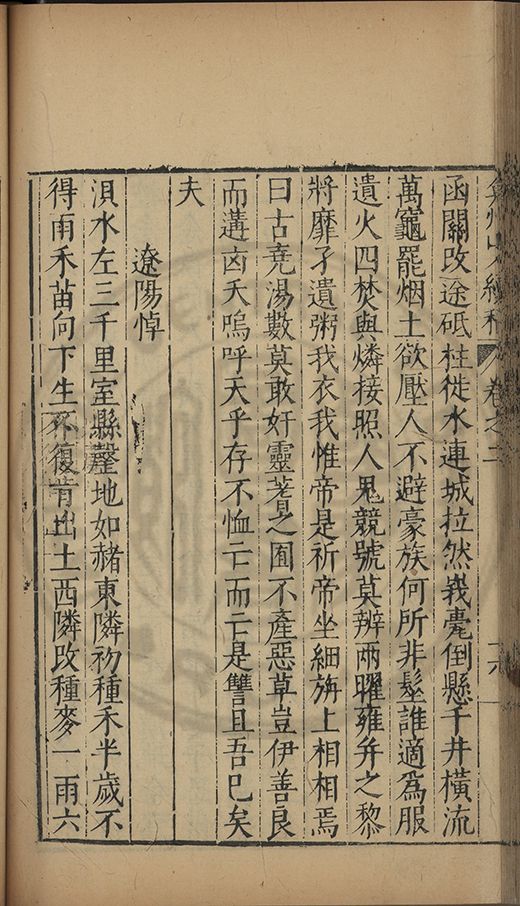 函關改途砥柱徙水連城拉然峩甍倒懸千井橫流
萬竈罷烟土欲壓人不避豪族何所非髽誰適爲服
遺火四焚與燐接照人鬼競號莫辨兩曜雍幷之黎
將靡孑遺粥我衣我惟帝是祈帝坐細旃上相相焉
曰古堯湯數莫敢奸靈蓍之囿不產惡草豈伊善良
而遘凶夭嗚呼天乎存不恤亡而亡是讐且吾已矣
夫
遼陽悼
浿水左三千里室縣罄地如赭東隣初種禾半歲不
得雨禾苗向下生不復肯出土西隣改種麥一雨六